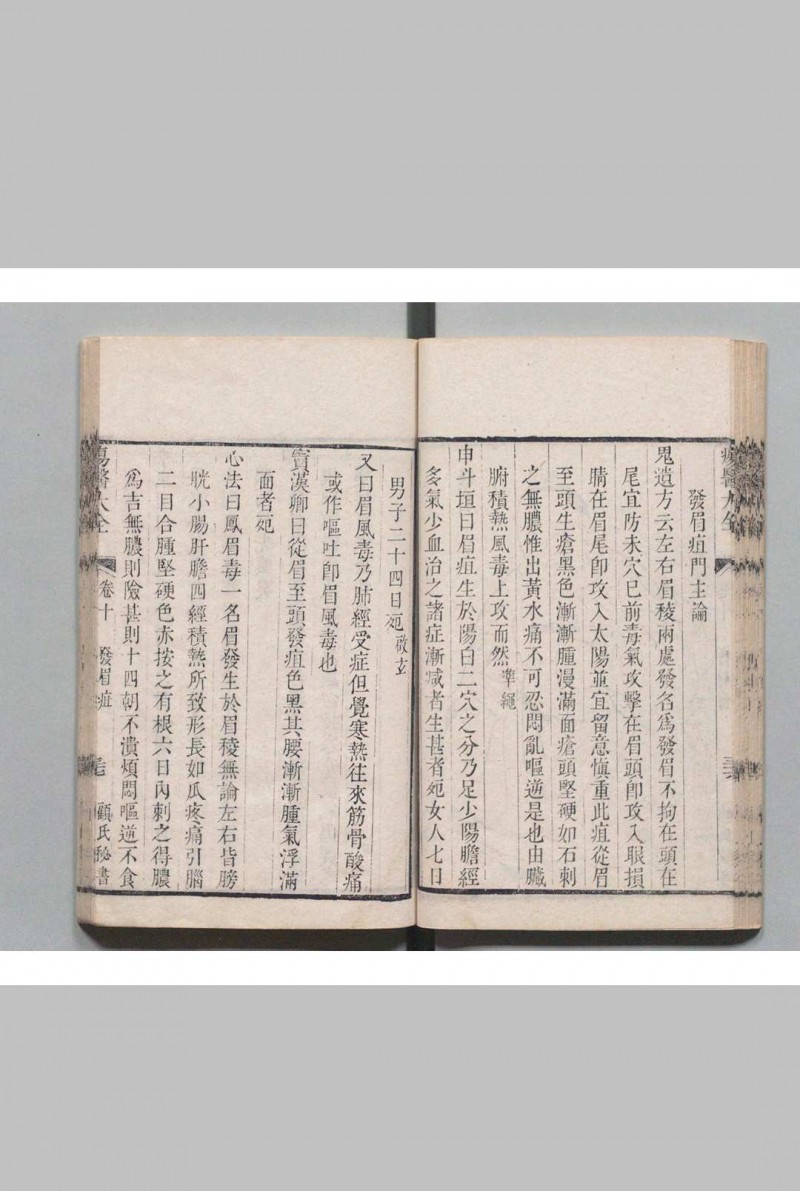 發眉疽門主論
鬼遺方云左右眉稜兩處發名爲發眉不拘在頭在
尾宜防未穴已前毒氣攻擊在眉頭卽攻入眼損
睛在眉尾卽攻入太陽並宜留意愼重此疽從眉
至頭生瘡黑色漸漸腫漫滿面瘡頭堅硬如石刺
之無膿惟出黃水痛不可忍悶亂嘔逆是也由臟
腑積熱風毒上攻而然準繩
申斗垣曰眉疽生於陽白二穴之分乃足少陽膽經
多氣少血治之諸症漸减者生甚者𣦸女人七日
男子二十四日𣦸啟玄
又曰眉風毒乃肺經受症但覺寒熱往來筋骨酸痛
或作嘔吐卽眉風毒也
竇漢卿曰從眉至頭發疽色黑其腰漸漸腫氣浮滿
面者𣦸
心法曰鳳眉毒一名眉發生於眉稜無論左右皆膀
胱小腸肝膽四經積熱所致形長如瓜疼痛引腦
二目合腫堅硬色赤按之有根六日內刺之得膿
爲吉無膿則險甚則十四朝不潰煩悶嘔逆不食
瘍醫大全 卷十 發眉疽 顧氏秘書